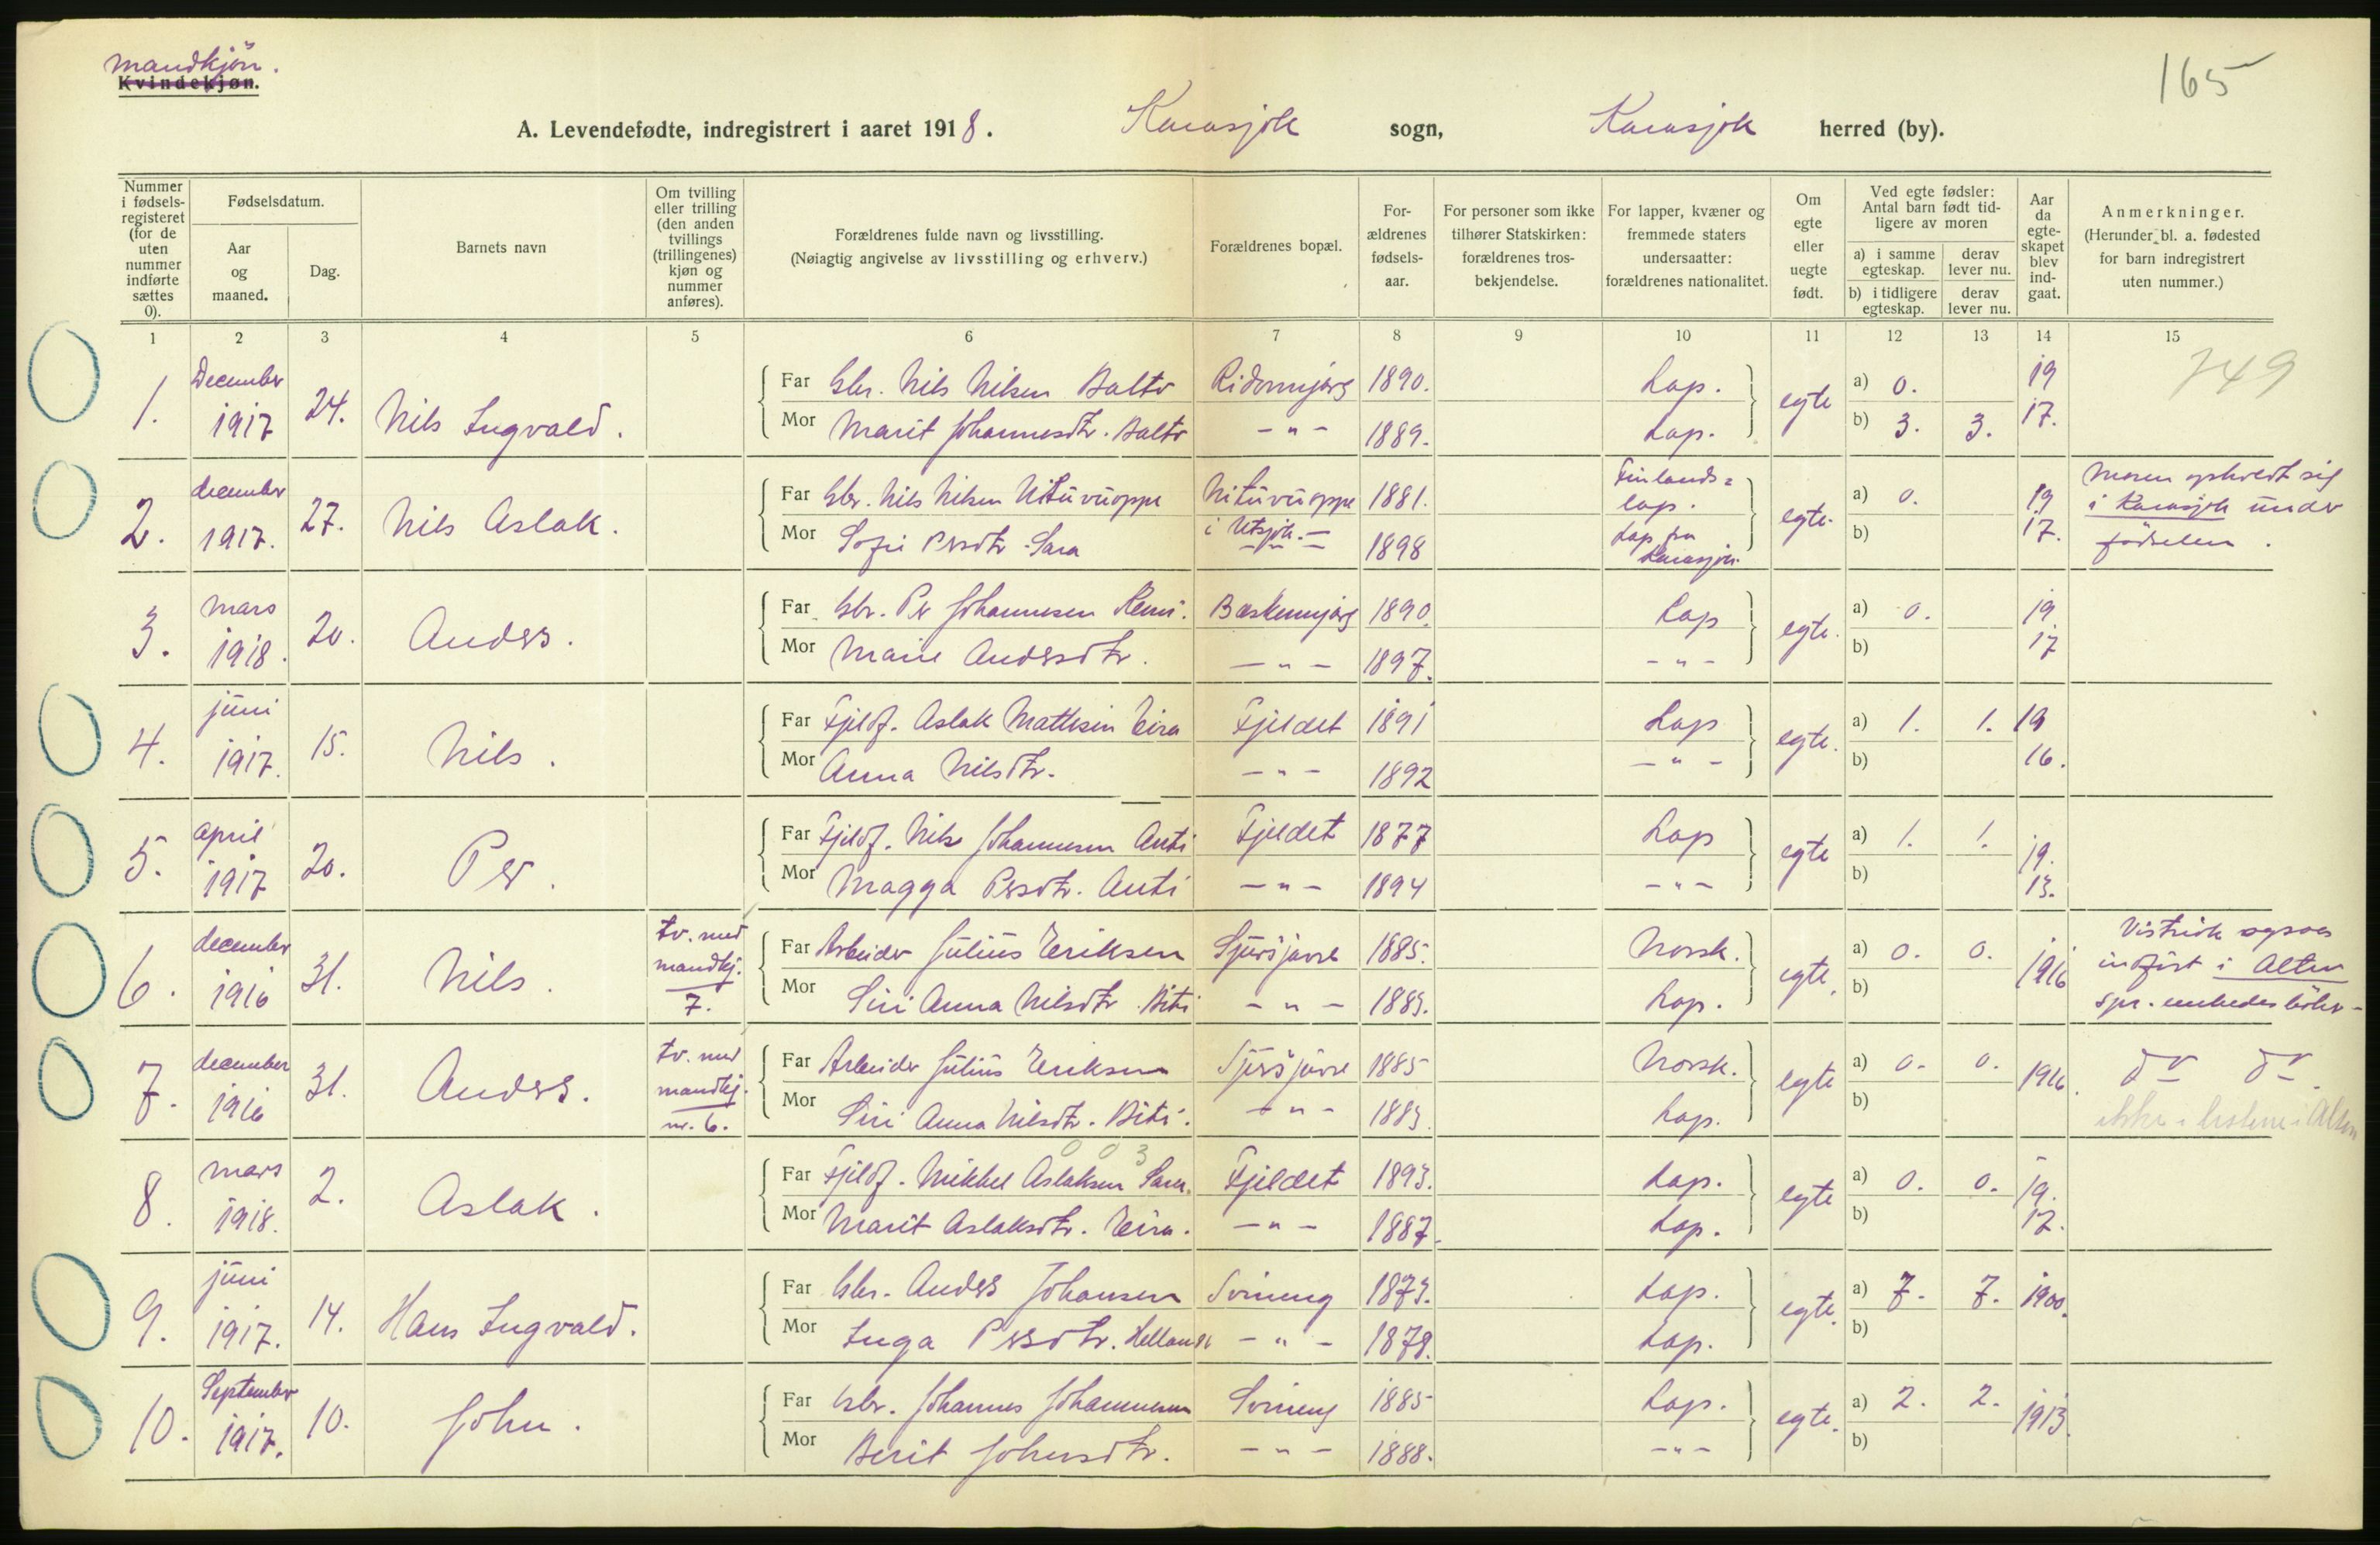 mandkjøn.
Kvindekjøn.
165
A. Levendefødte, indregistrert i aaret 1918. Karasjok sogn, Karasjok herred (by).
Nummer i fødsels-registeret (for de uten nummer indførte sættes 0).
Fødselsdatum.
Aar og maaned.
Dag.
Barnets navn
Om tvilling eller trilling (den anden tvillings (trillingenes) kjøn og nummer anføres).
Forældrenes fulde navn og livsstilling.
(Nøiagtig angivelse av livsstilling og erhverv.)
Forældrenes bopæl.
For-ældrenes fødsels-aar.
For personer som ikke tilhører Statskirken: forældrenes tros-bekjendelse.
For lapper, kvæner og fremmede staters undersaatter: forældrenes nationalitet.
Om egte eller uegte født.
Ved egte fødsler: Antal barn født tid-ligere av moren
a) i samme egteskap.
derav lever nu.
b) i tidligere egteskap.
derav lever nu.
Aar da egte-skapet blev ind-gaat.
Anmerkninger.
(Herunder bl. a. fødested for barn indregistrert uten nummer.)
1 2 3 4 5 6 7 8 9 10 11 12 13 14 15
749
1. December 1917 24. Nils Ingvald.
Far Gbr. Nils Nilsen Balto Ridomnjarg 1890. Lap. egte a) 0. 19
Mor Marit Johannesdtr. Balto - " - 1889. Lap. b) 3. 3. 17.
2. december 1917. 27. Nils Aslak.
Far Gbr. Nils Nilsen Nituvuoppe Nituvuoppe 1881. Finlands= lap. egte. a) 0. 19
Mor Sofie Persdtr. Sara i Utsjok. 1898 Lap fra Karasjok b) 17.
Moren opholdt sig
i Karasjok under
fødselen.
3. mars 1918. 20. Anders.
Far Gbr. Per Johannesen Kemi. Bæskennjarg 1890. Lap egte. a) 0. 19.
Mor Marie Andersdtr. - " - 1897. - " - b) 17
4. juni 1917. 15. Nils.
Far Fjeldf. Aslak Mathisen Eira Fjeldet 1891 Lap egte. a) 1. 1. 19
Mor Anna Nilsdtr. - " - 1892 - " - b) 16.
5. april 1917 20. Per.
Far Fjeldf. Nils Johannesen Anti Fjeldet 1877 Lap egte a) 1. 1. 19.
Mor Magga Persdtr. Anti - " - 1894 - " - b) 13.
6. december 1916 31. Nils. tv. med mandkj. 7.
Far Arbeider Julius Eriksen 1885. Norsk. egte. a) 0. 0. 1916
Mor Siri Anna Nilsdtr. Biti - " - 1883. Lap. b)
indført i Alten
7. december 1916 31. Anders. tv. med mandkj. nr. 6.
Far Arbeider Julius Eriksen 1885 Norsk. egte a) 0. 0. 1916.
Mor Siri Anna Nilsdtr. Biti. - " - 1883. Lap. b)
do do.
ikke i listene i Alten
0 0 3
8. mars 1918. 2. Aslak.
Far Fjeldf. Mikkel Aslaksen Sara. Fjeldet 1893. Lap. egte a) 0. 0. 19.
Mor Marit Aslaksdtr. Eira. - " - 1887. Lap. b) 17.
9. juni 1917. 14. Hans Ingvald.
Far Gbr. Anders Johansen 1873. Lap. egte. a) 7. 7. 1900.
Mor Inga Persdtr. Hellander - " - 1878. Lap. b)
10. September 1917. 10. John.
Far Gbr. Johannes Johannesen 1885 Lap. egte. a) 2. 2. 1913.
Mor Berit Johnsdtr. - " - 1888. - " - b)